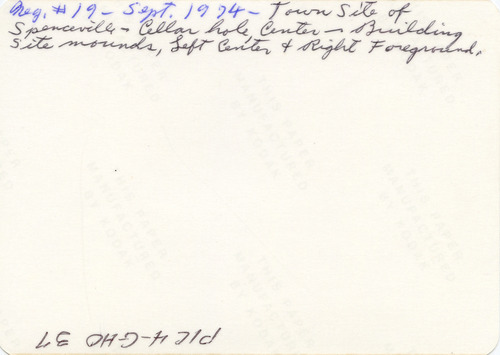 Neg. #19 - Sept. 1974 - Town Site of
Spenceville - Cellar hole, Center - Building
Site mounds, Left Center & Right Foreground.
THIS PAPER
MANUFACTURED
BY KODAK
PIC 4-GHO 37